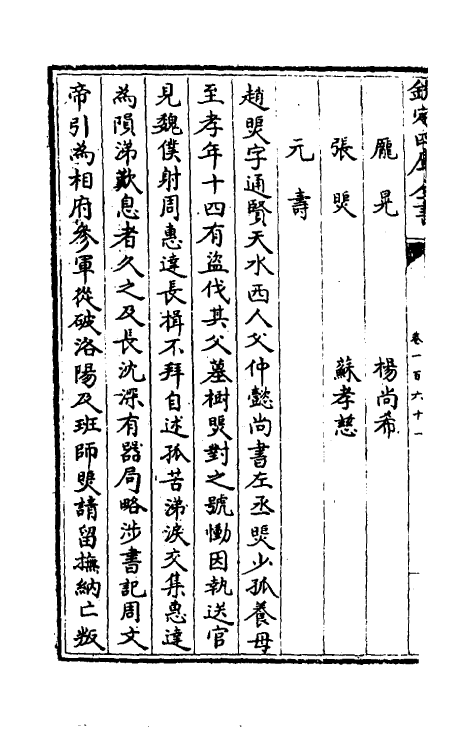 欽定四庫全書
卷一百六十一
龎晃　楊尚希
張煚　蘇孝慈
元壽
趙煚字通賢天水西人父仲懿尚書左丞煚少孤養母
至孝年十四有盜伐其父墓樹煚對之號慟因執送官
見魏僕射周惠達長揖不拜自述孤苦涕淚交集惠達
為隕涕歎息者久之及長沈深有器局略涉書記周文
帝引為相府參軍從破洛陽及班師煚請留撫納亡叛